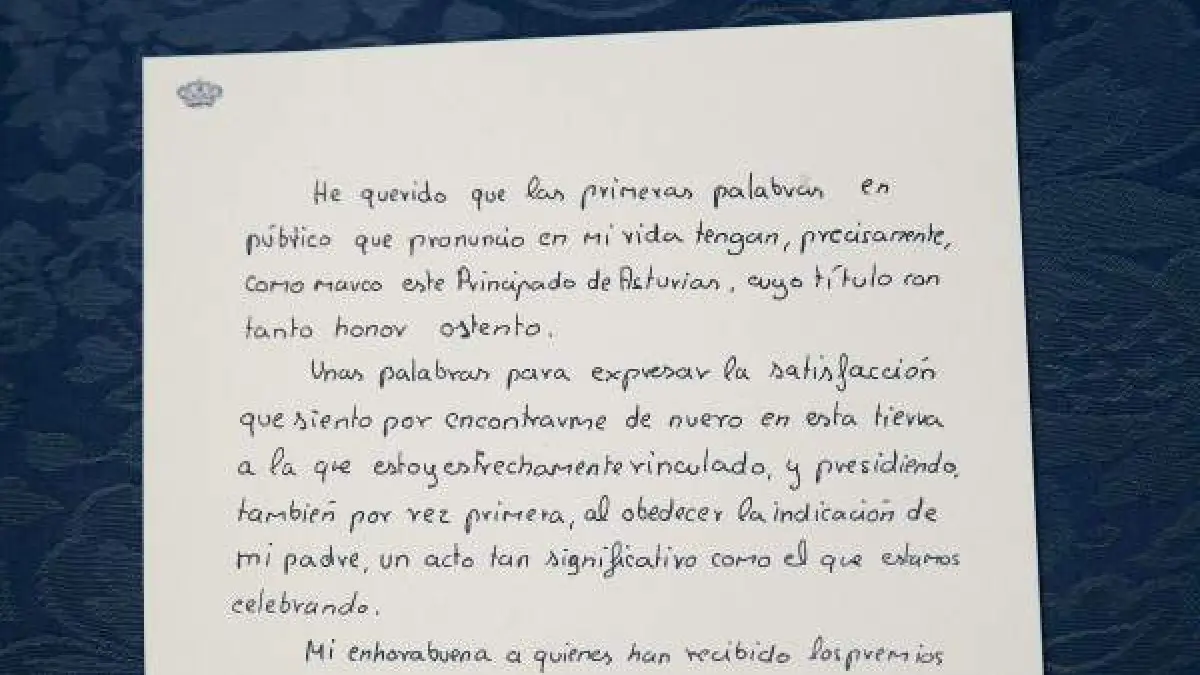 He querido que las primeras palabras en
público que pronuncio en mi vida tengan, precisamente,
como marco este Principado de Asturias, cuyo título con
tanto honor ostento.
Unas palabras para expresar la satisfacción
que siento por encontrarme de nuevo en esta tierra
a la que estoy estrechamente vinculado, y presidiendo,
también por vez primera, al obedecer la indicación de
mi padre, un acto tan significativo como el que estamos
celebrando.
Mi enhorabuena a quienes han recibido los premios